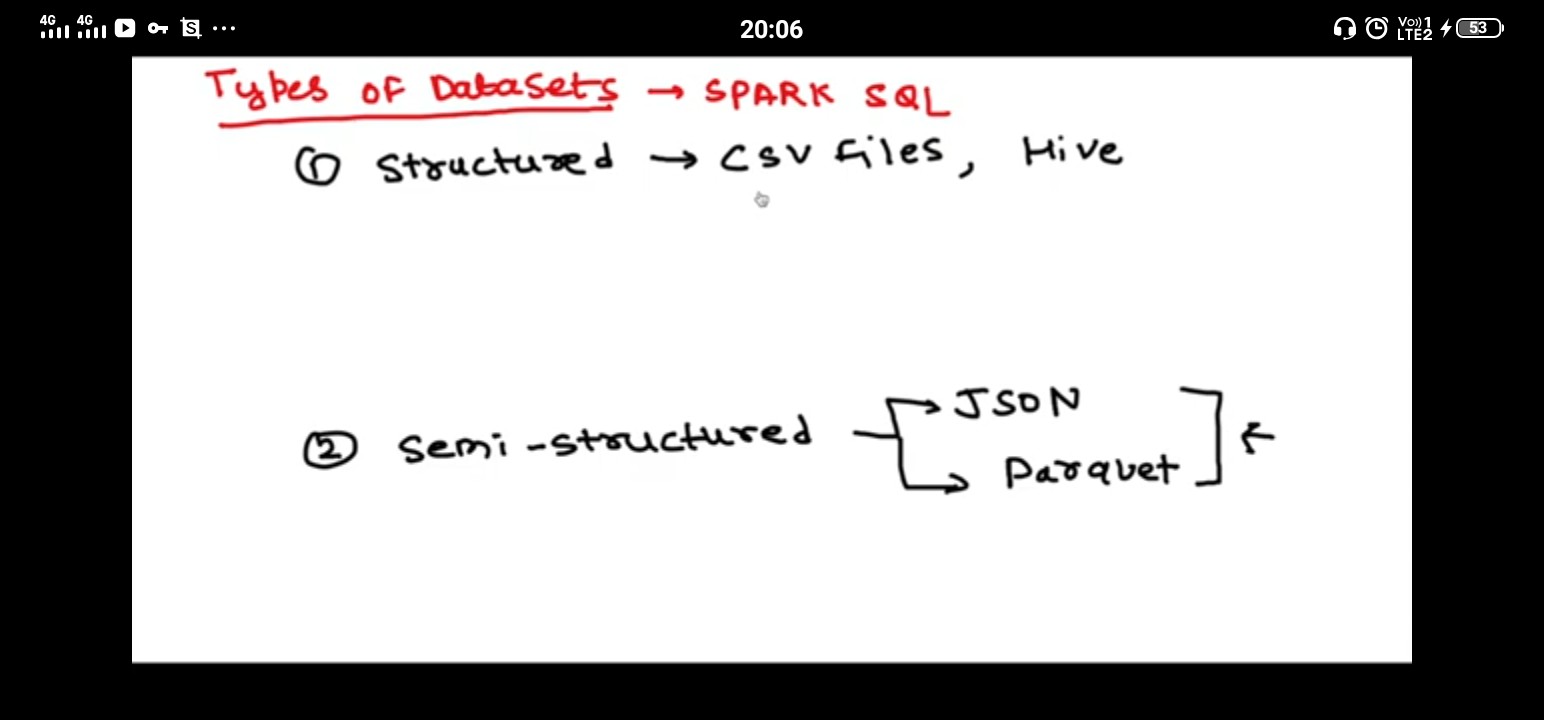 4G 4G S ... 20:06 Vo)) 1 LTE2 53
Types of Datasets → SPARK SQL
① Structured → CSV Files, Hive
JSON
② Semi-structured
Parquet